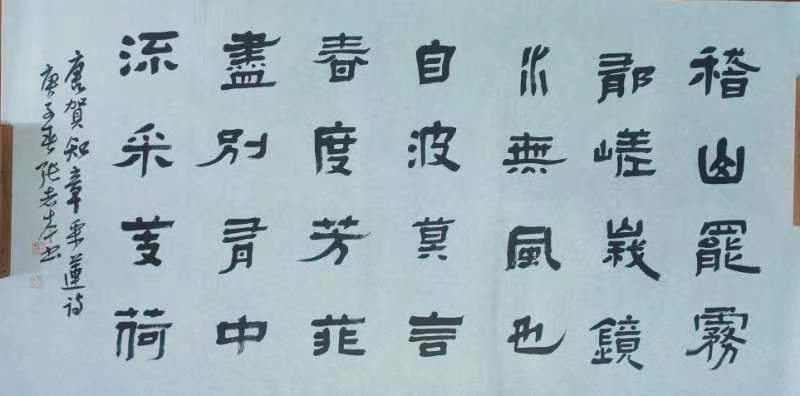 稽山罷霧
郁嵯峩鏡
水無風也
自波莫言
春度芳菲
盡别有中
流采芰荷
唐賀知章采蓮詩
庚子春张志本书